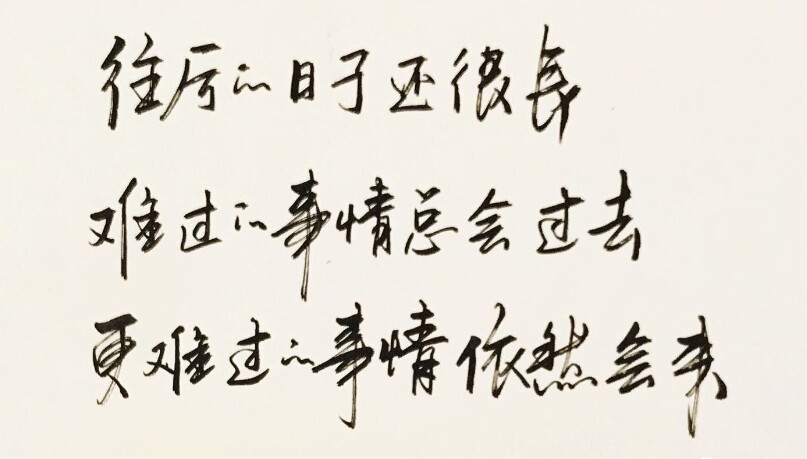 往后的日子还很长
难过的事情总会过去
更难过的事情依然会来